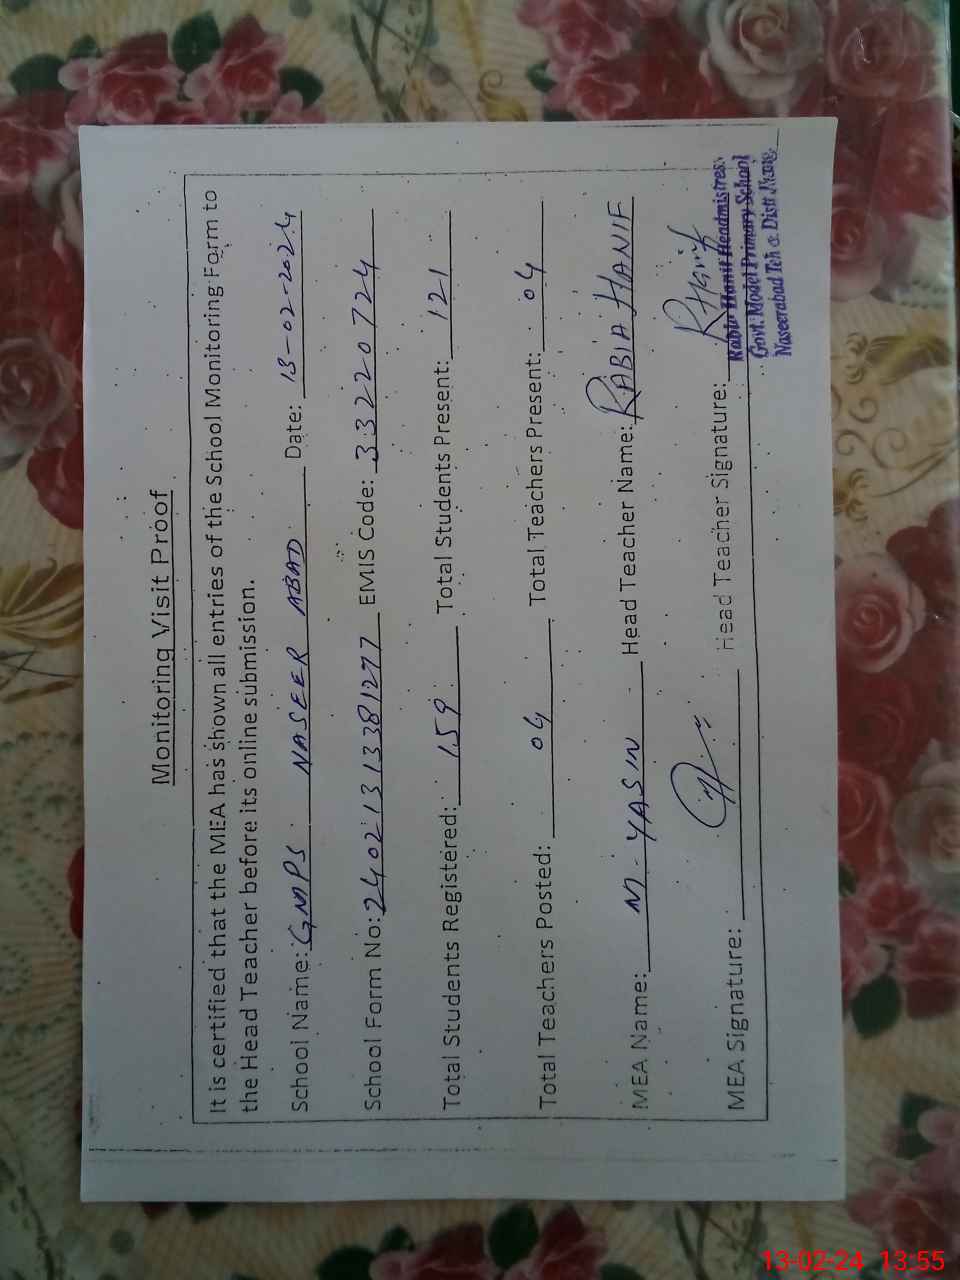 Monitoring Visit Proof
It is certified that the MEA has shown all entries of the School Monitoring Form to
the Head Teacher before its online submission.
School Name: GMPS NASEER ABAD Date: 13-02-2024
School Form No: 24021313381277 EMIS Code: 33220724
Total Students Registered: 159 Total Students Present: 121
Total Teachers Posted: 04 Total Teachers Present: 04
MEA Name: M. YASIN Head Teacher Name: RABIA HANIF
MEA Signature: Head Teacher Signature: RHanif
Rabia Hanif Headmistress
Govt. Model Primary School
Naseerabad Teh & Distt Jhang
13-02-24 13:55